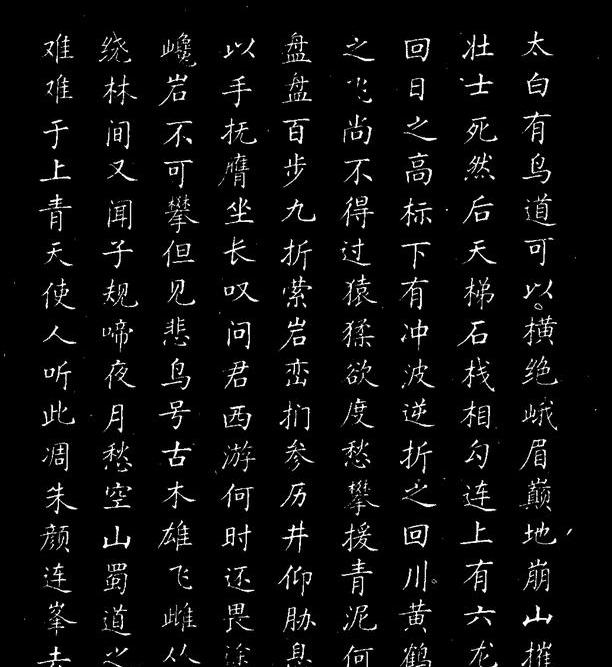 太白有鸟道可以。横绝峨眉巅地崩山摧
壮士死然后天梯石栈相勾连上有六龙
回日之高标下有冲波逆折之回川。黄鹤
之飞尚不得过猿猱欲度愁攀援青泥何
盘盘百步九折萦岩峦扪参历井仰胁息
以手抚膺坐长叹问君西游何时还畏途
巉岩不可攀但见悲鸟号古木雄飞雌从
绕林间又闻子规啼夜月愁空山蜀道之
难难于上青天使人听此凋朱颜连峯去